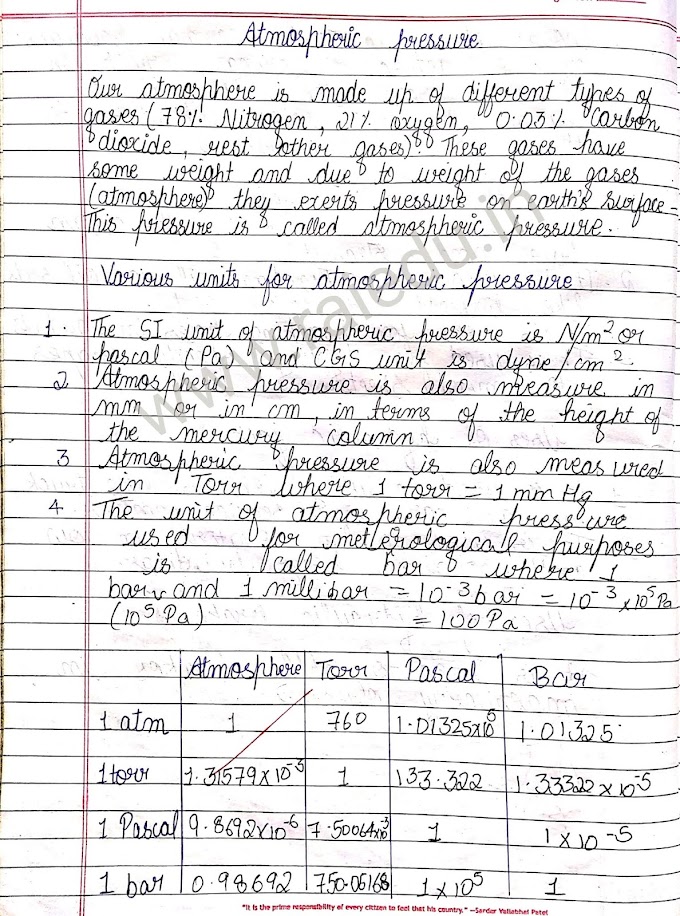 Atmospheric pressure
Our atmosphere is made up of different types of
gases (78% Nitrogen, 21% oxygen, 0.03% Carbon
dioxide, rest other gases). These gases have
some weight and due to weight of the gases
(atmosphere) they exerts pressure on earth's surface.
This pressure is called atmospheric pressure.
Various units for atmospheric pressure
1. The SI unit of atmospheric pressure is N/m² or
pascal (Pa) and CGS unit is dyne/cm².
2. Atmospheric pressure is also measure in
mm or in cm, in terms of the height of
the mercury column.
3 Atmospheric pressure is also measured
in Torr where 1 torr = 1 mm Hg
4 The unit of atmospheric pressure
used for meterological purposes
is called bar where 1
bar and 1 millibar = 10⁻³ bar = 10⁻³ x 10⁵ Pa
(10⁵ Pa) = 100 Pa
Atmosphere Torr Pascal Bar
1 atm 1 760 1.01325x10⁵ 1.01325
1 torr 1.31579x10⁻³ 1 133.322 1.33322x10⁻⁵
1 Pascal 9.8692x10⁻⁶ 7.50064x10⁻³ 1 1x10⁻⁵
1 bar 0.98692 750.06168 1x10⁵ 1
"It is the prime responsibility of every citizen to feel that his country." –Sardar Vallabhbhai Patel
www.rajedu.in